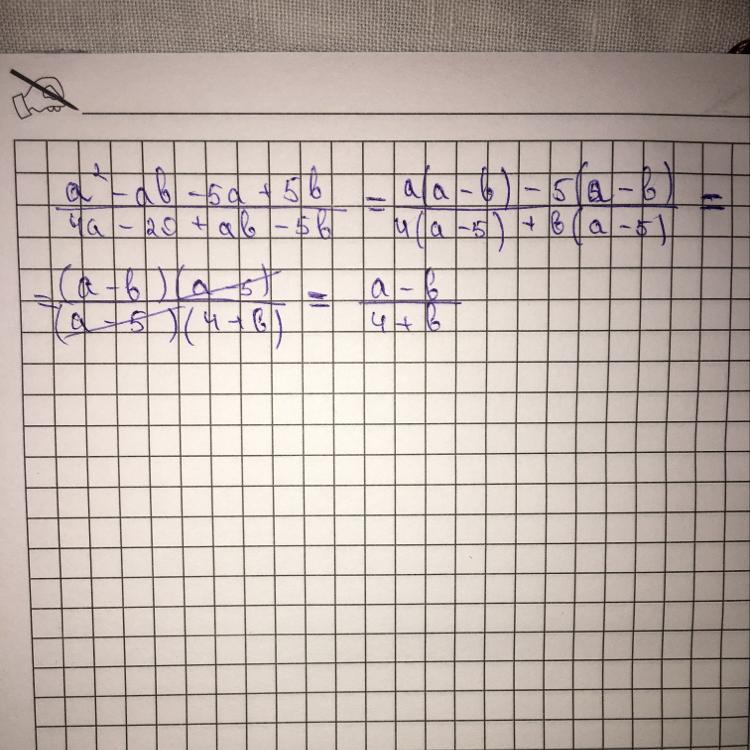 a² - ab - 5a + 5b / 4a - 20 + ab - 5b = a(a - b) - 5(a - b) / 4(a - 5) + b(a - 5) =
= (a - b)(a - 5) / (a - 5)(4 + b) = a - b / 4 + b